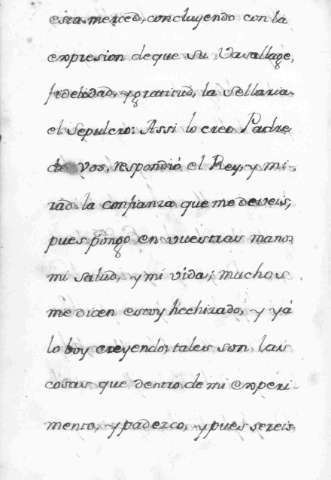 esta merced, concluyendo con la
expresion de que su Vasallage,
fidelidad, y gratitud, la sellaria
el sepulcro: Assi lo creo Padre
de Vos, respondió el Rey, y mi-
rad la confianza que me deveis,
pues pongo en vuestras manos
mi salud, y mi vida; muchos
me dicen estoy hechizado, y yá
lo boy creyendo; tales son las
cosas que dentro de mi experi-
mento, y padezco, y pues sereis